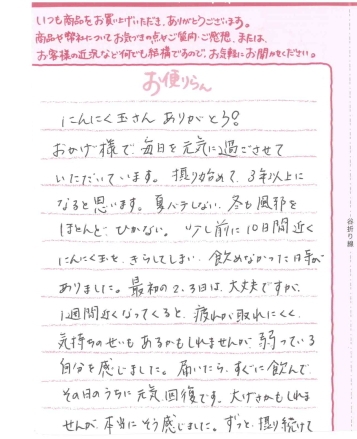 いつも商品をお買い上げいただき、ありがとうございます。
商品や弊社についてお気づきの点やご質問・ご感想、または、
お客様の近況など何でも結構ですので、お気軽にお聞かせください。
お便りらん
にんにく玉さん ありがとう!
おかげ様で、毎日を元気に過ごさせて
いただいています。摂り始めて、3年以上に
なると思います。夏バテしない、冬も風邪を
ほとんど、ひかない。少し前に10日間近く
にんにく玉を、きらしてしまい、飲めなかった日々が
ありました。最初の2,3日は、大丈夫ですが、
1週間近くなってくると、疲れが取れにくく、
気持ちのせいもあるかもしれませんが、弱っている
自分を感じました。届いたら、すぐに飲んで、
その日のうちに元気回復です。大げさかもしれま
せんが、本当にそう感じました。ずっと、摂り続けて
谷折り線